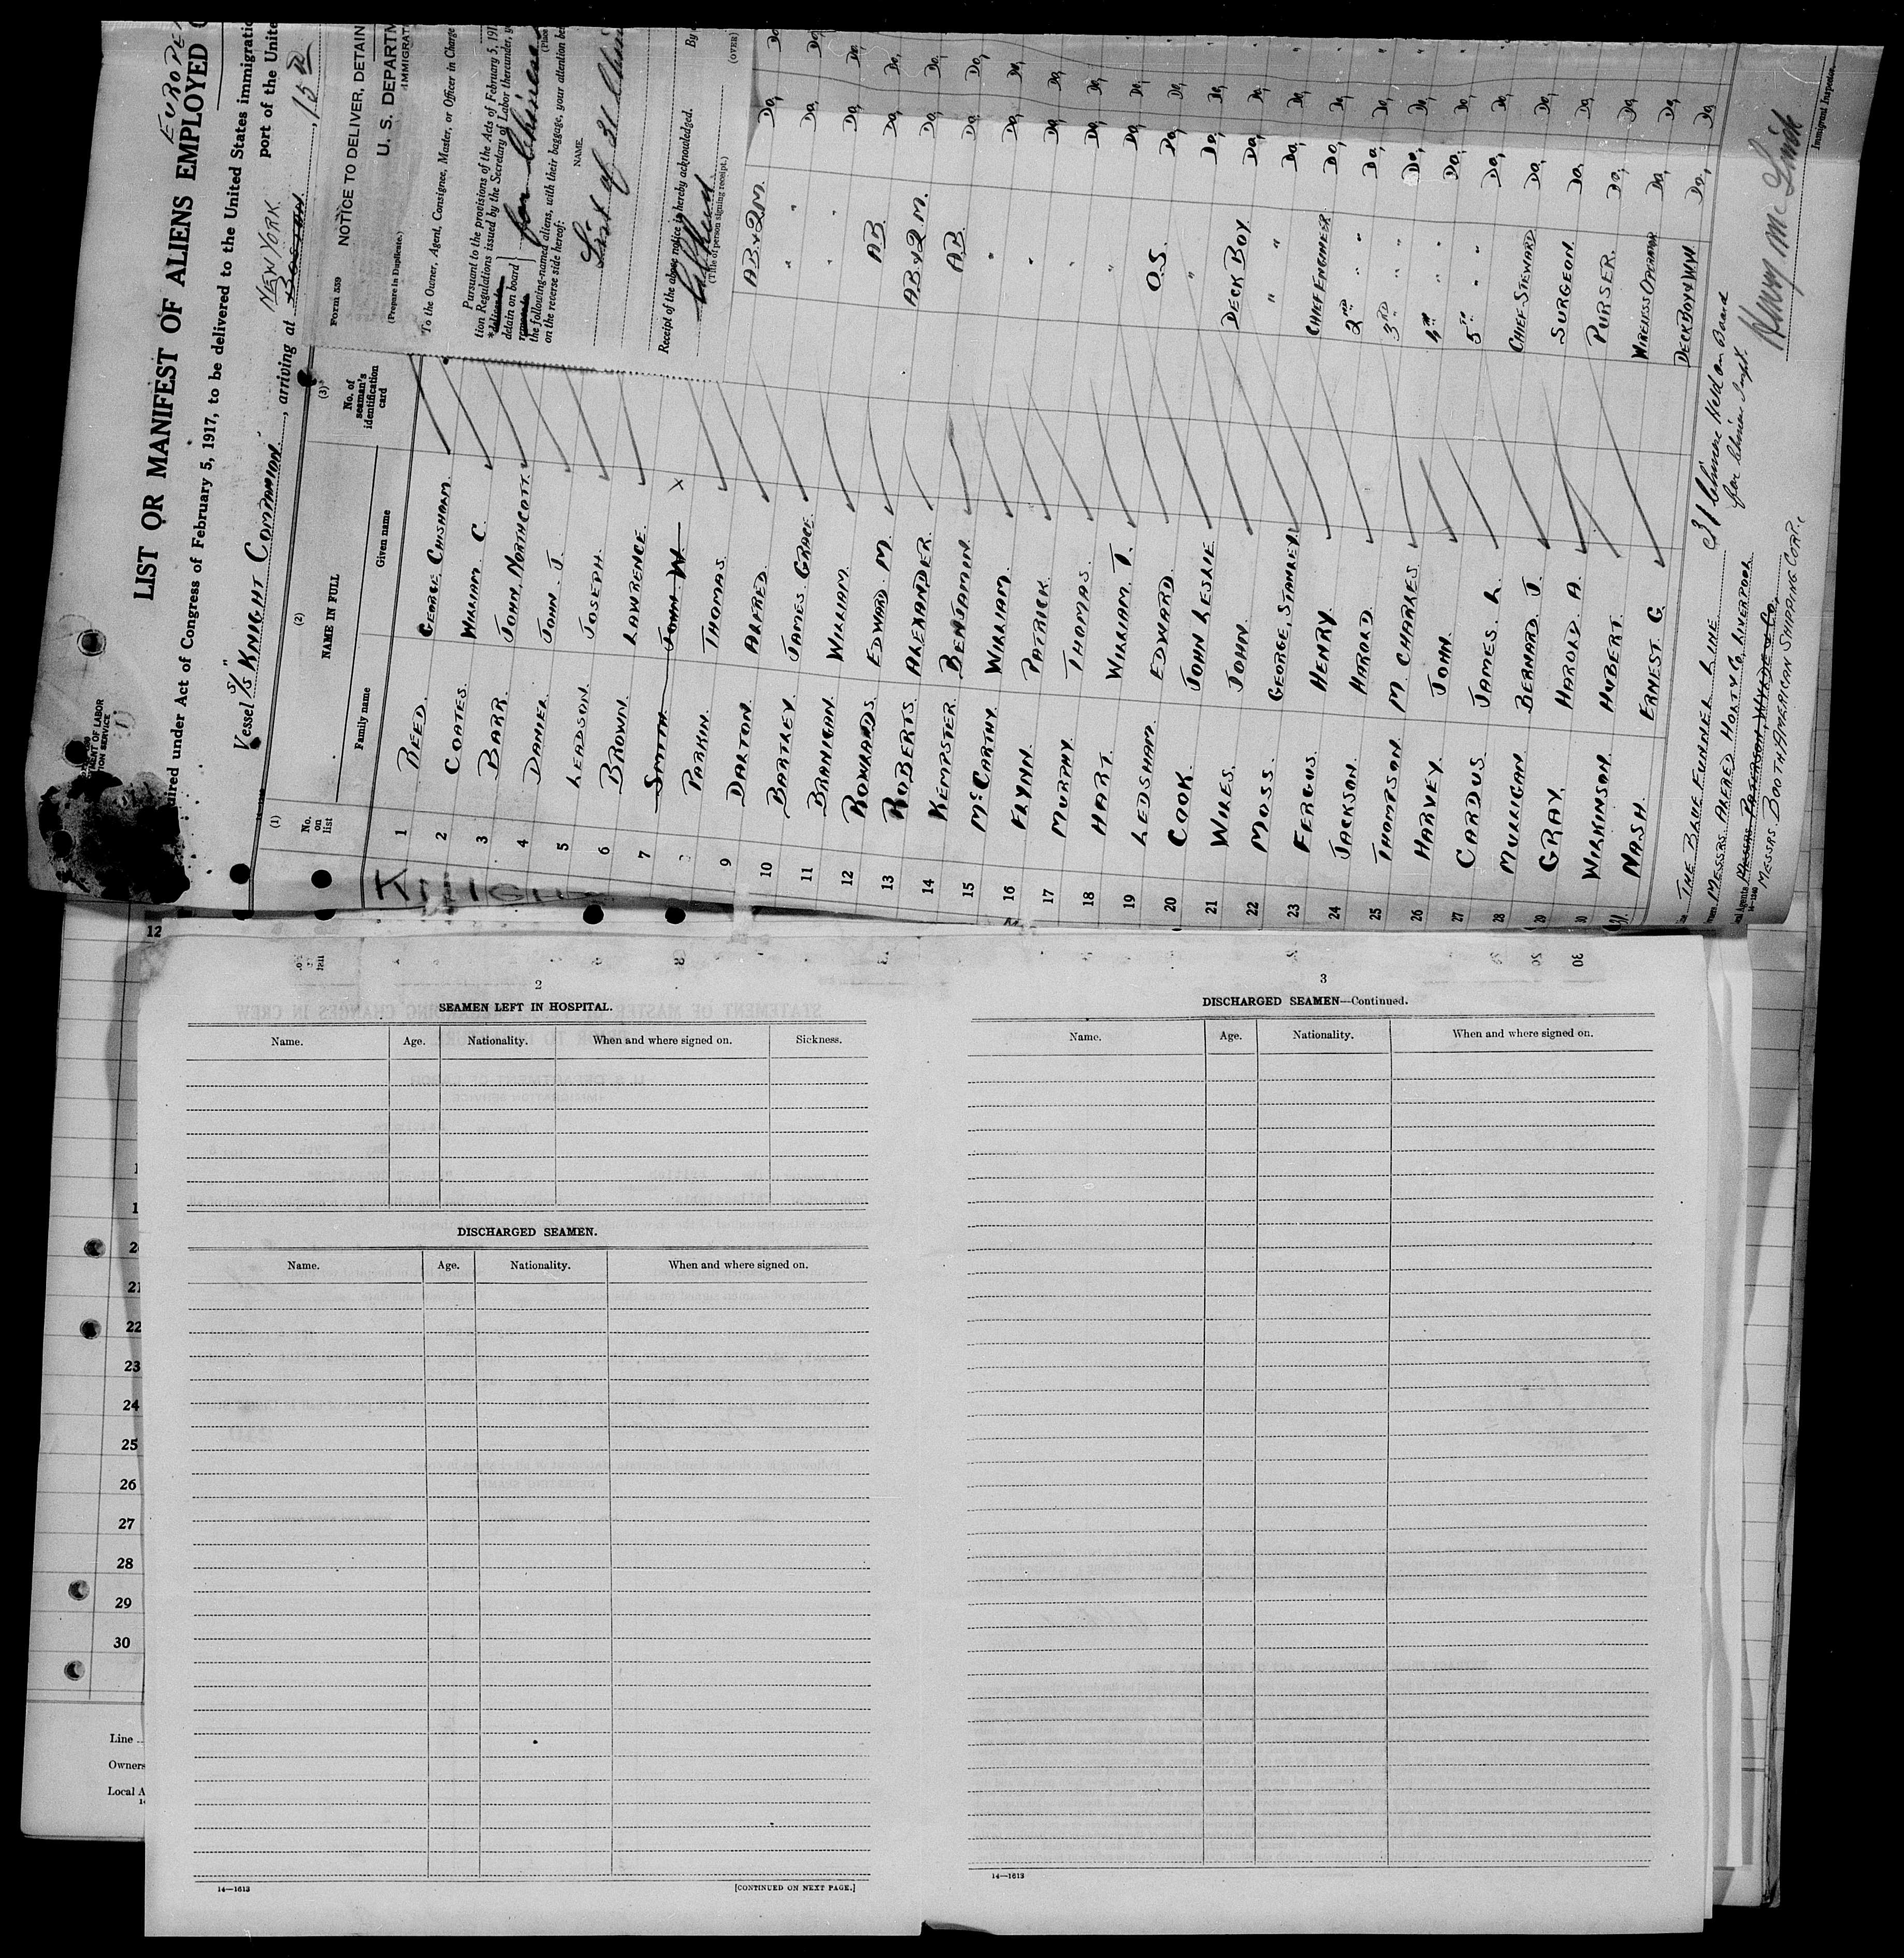 EUROPE
LIST OR MANIFEST OF ALIENS EMPLOYED
uired under Act of Congress of February 5, 1917, to be delivered to the United States immigratio
Vessel S/S "KNIGHT COMPANION", arriving at BOSTON NEW YORK, 15th port of the Unite
(1) (2) (3)
No. on list
NAME IN FULL
Family name Given name
No. of seaman's identification card
Form 539 NOTICE TO DELIVER, DETAIN
(Prepare in Duplicate.)
U. S. DEPARTM
IMMIGRAT
To the Owner, Agent, Consignee, Master, or Officer in Charge
Pursuant to the provisions of the Acts of February 5, 191
tion Regulations issued by the Secretary of Labor thereunder, y
*deliver to
detain on board } for Chinese
remove to
(Place
the following-named aliens, with their baggage, your attention be
on the reverse side hereof:
NAME.
List of 31 Chin
Receipt of the above notice is hereby acknowledged. By
(Title of person signing receipt.)
(OVER)
1 REED. GEORGE CHISHOLM.
2 COATES. WILLIAM C.
3 BARR. JOHN, NORTHCOTT.
4 DANIEL JOHN. J.
5 LEADSON. JOSEPH.
6 BROWN. LAWRENCE.
7 SMITH JOHN W. X
8 PARKIN. THOMAS.
9 DALTON. ALFRED. AB & 2M. Do, Do,
10 BARTLEY. JAMES GRACE. " " Do, Do,
11 BRANIGAN. WILLIAM. " " Do, Do,
12 ROWANDS. EDWARD M. AB. Do, Do,
13 ROBERTS. ALEXANDER. AB & 2 M. Do, Do,
14 KEMPSTER. BENJAMIN. AB. Do, Do,
15 McCARTHY. WILLIAM. " Do, Do,
16 FLYNN. PATRICK. " Do, Do,
17 MURPHY. THOMAS. " Do, Do,
18 HART. WILLIAM T. " Do, Do,
19 LEDSHAM. EDWARD. O.S. Do, Do,
20 COOK. JOHN LESLIE " Do, Do,
21 WILES. JOHN. DECK BOY. Do, Do,
22 MOSS. GEORGE, STANLEY. " " Do, Do,
23 FERGUS. HENRY. CHIEF ENGINEER Do, Do,
24 JACKSON. HAROLD. 2ND " Do, Do,
25 THOMPSON M. CHARLES 3RD " Do, Do,
26 HARVEY. JOHN. 4TH " Do, Do,
27 CARDUS JAMES. L. 5TH " Do, Do,
28 MULLIGAN BERNARD J. CHIEF STEWARD Do, Do,
29 GRAY. HAROLD. A. SURGEON. Do, Do,
30 WILKINSON. HUBERT. PURSER. Do, Do,
31. NASH. ERNEST G. WIRELESS OPERATOR Do, Do,
DECK BOY & WW Do, Do,
THE BLUE FUNNEL LINE
MESSRS. ALFRED HOLT & Co, LIVERPOOL
al Agents MESSRS. PATERSON, WYLDE & Co.
14—1240
MESSRS. BOOTH AMERICAN SHIPPING CORP.
31 Chinese Held on Board
for Chinese Inspt.
Immigrant Inspector.
MENT OF LABOR
TION SERVICE
12
2
SEAMEN LEFT IN HOSPITAL.
Name. Age. Nationality. When and where signed on. Sickness.
DISCHARGED SEAMEN.
Name. Age. Nationality. When and where signed on.
14—1613 [CONTINUED ON NEXT PAGE.]
3
DISCHARGED SEAMEN—Continued.
Name. Age. Nationality. When and where signed on.
14—1613
20
21
22
23
24
25
26
27
28
29
30
Line
Owners
Local A